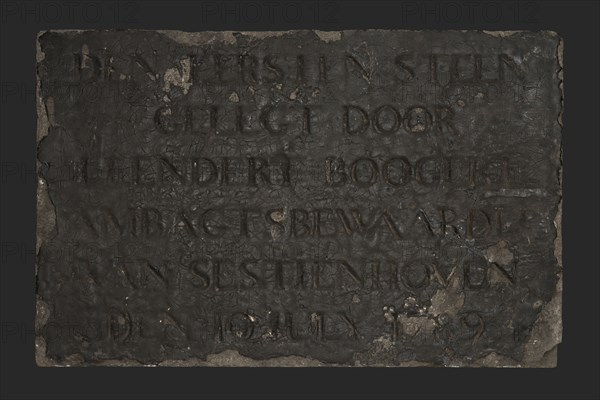 DEN EERSTEN STEEN
GELEGT DOOR
LEENDERT BOOGERT
AMBAGTSBEWAARDER
VAN SESTIENHOVEN
DEN 10 JULY 1789